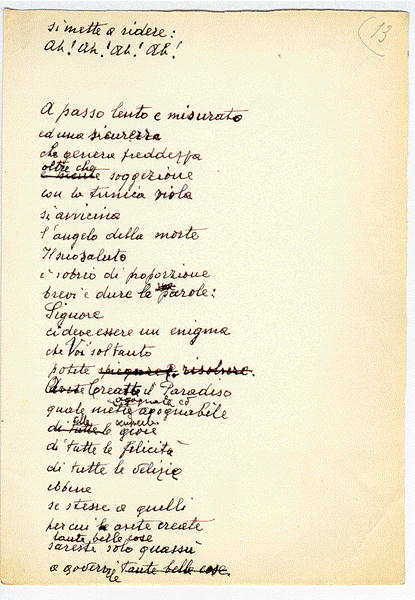 13
si mette a ridere:
Ah! Ah! Ah! Ah!
A passo lento e misurato
ed una sicurezza
che genera freddezza
oltre che
e incute soggezione
con la tunica viola
si avvicina
l'angelo della morte
Il suo saluto
è sobrio di proporzione
brevi e dure le parole:
Signore
ci deve essere un enigma
che Voi soltanto
potete spiegare o risolvere.
Avete Creato il Paradiso
agognata
quale meta agognabile
di tutte le gioie
di tutte le felicità
di tutte le delizie
ebbene
se stesse a quelli
per cui le avete create
tante belle cose
sareste solo quassù
a goderle tante belle cose.